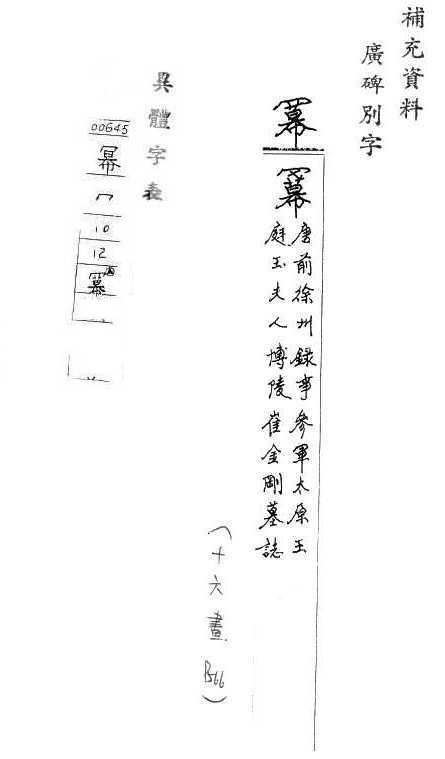 補充資料
廣碑別字
冪
唐前徐州録事參軍太原王
庭玉夫人博陵崔金剛墓誌
(十六畫 B66)
異體字表
00645
冪
冖
10
12